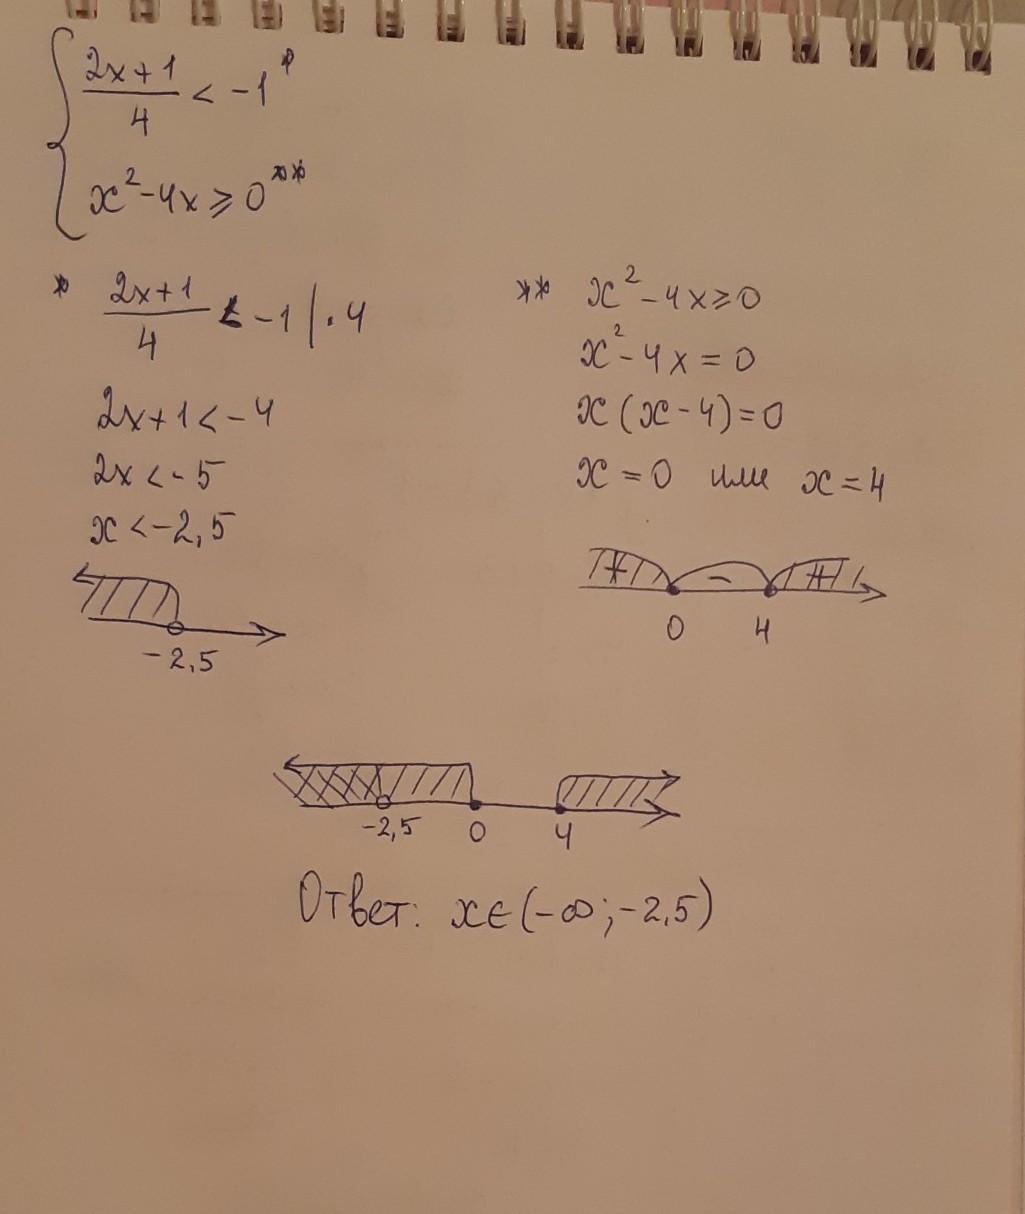 { (2x+1)/4 < -1 *
x² - 4x ⩾ 0 **
* (2x+1)/4 < -1 | · 4
2x+1 < -4
2x < -5
x < -2,5
-2,5
** x² - 4x ⩾ 0
x² - 4x = 0
x (x - 4) = 0
x = 0 или x = 4
+ - +
0 4
-2,5 0 4
Ответ: x ∈ (-∞; -2,5)